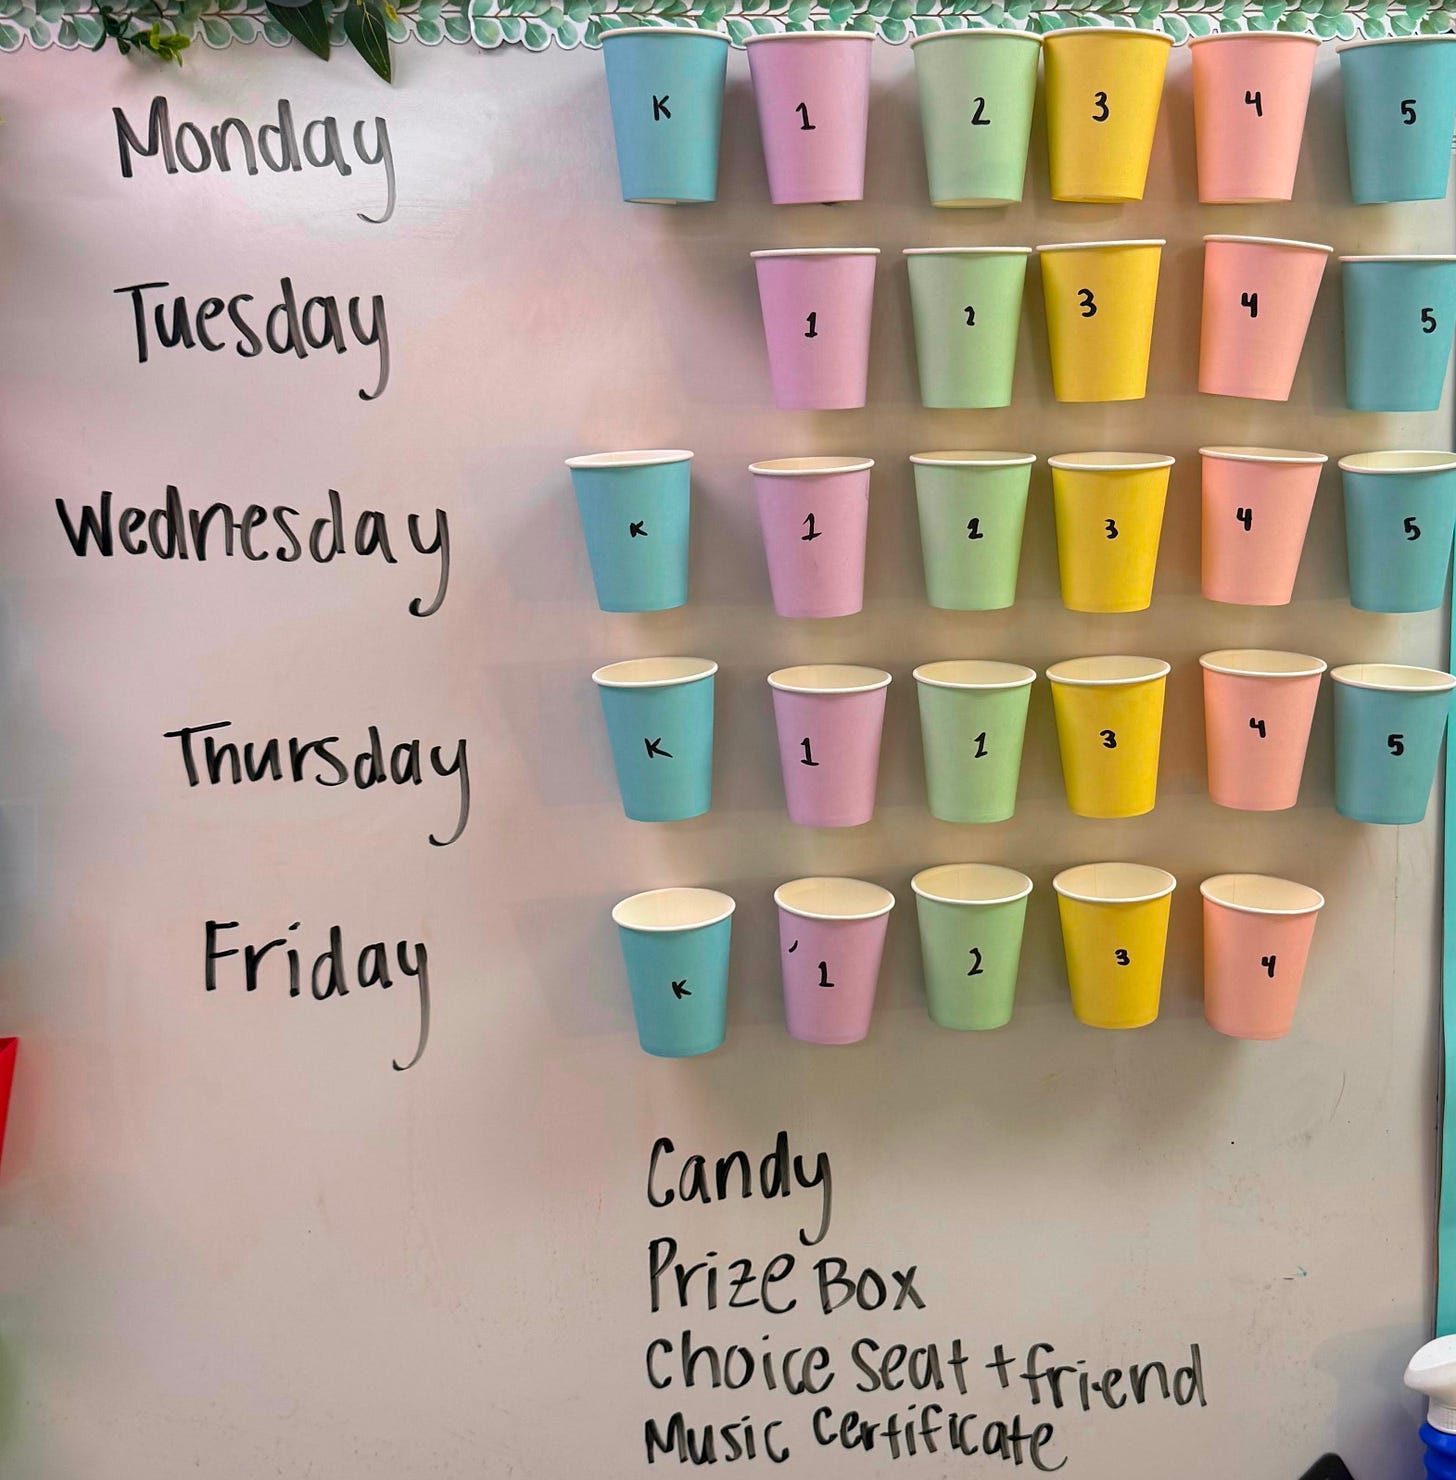 Monday K 1 2 3 4 5
Tuesday 1 2 3 4 5
Wednesday K 1 2 3 4 5
Thursday K 1 2 3 4 5
Friday K 1 2 3 4
Candy
Prize Box
Choice seat + friend
Music certificate